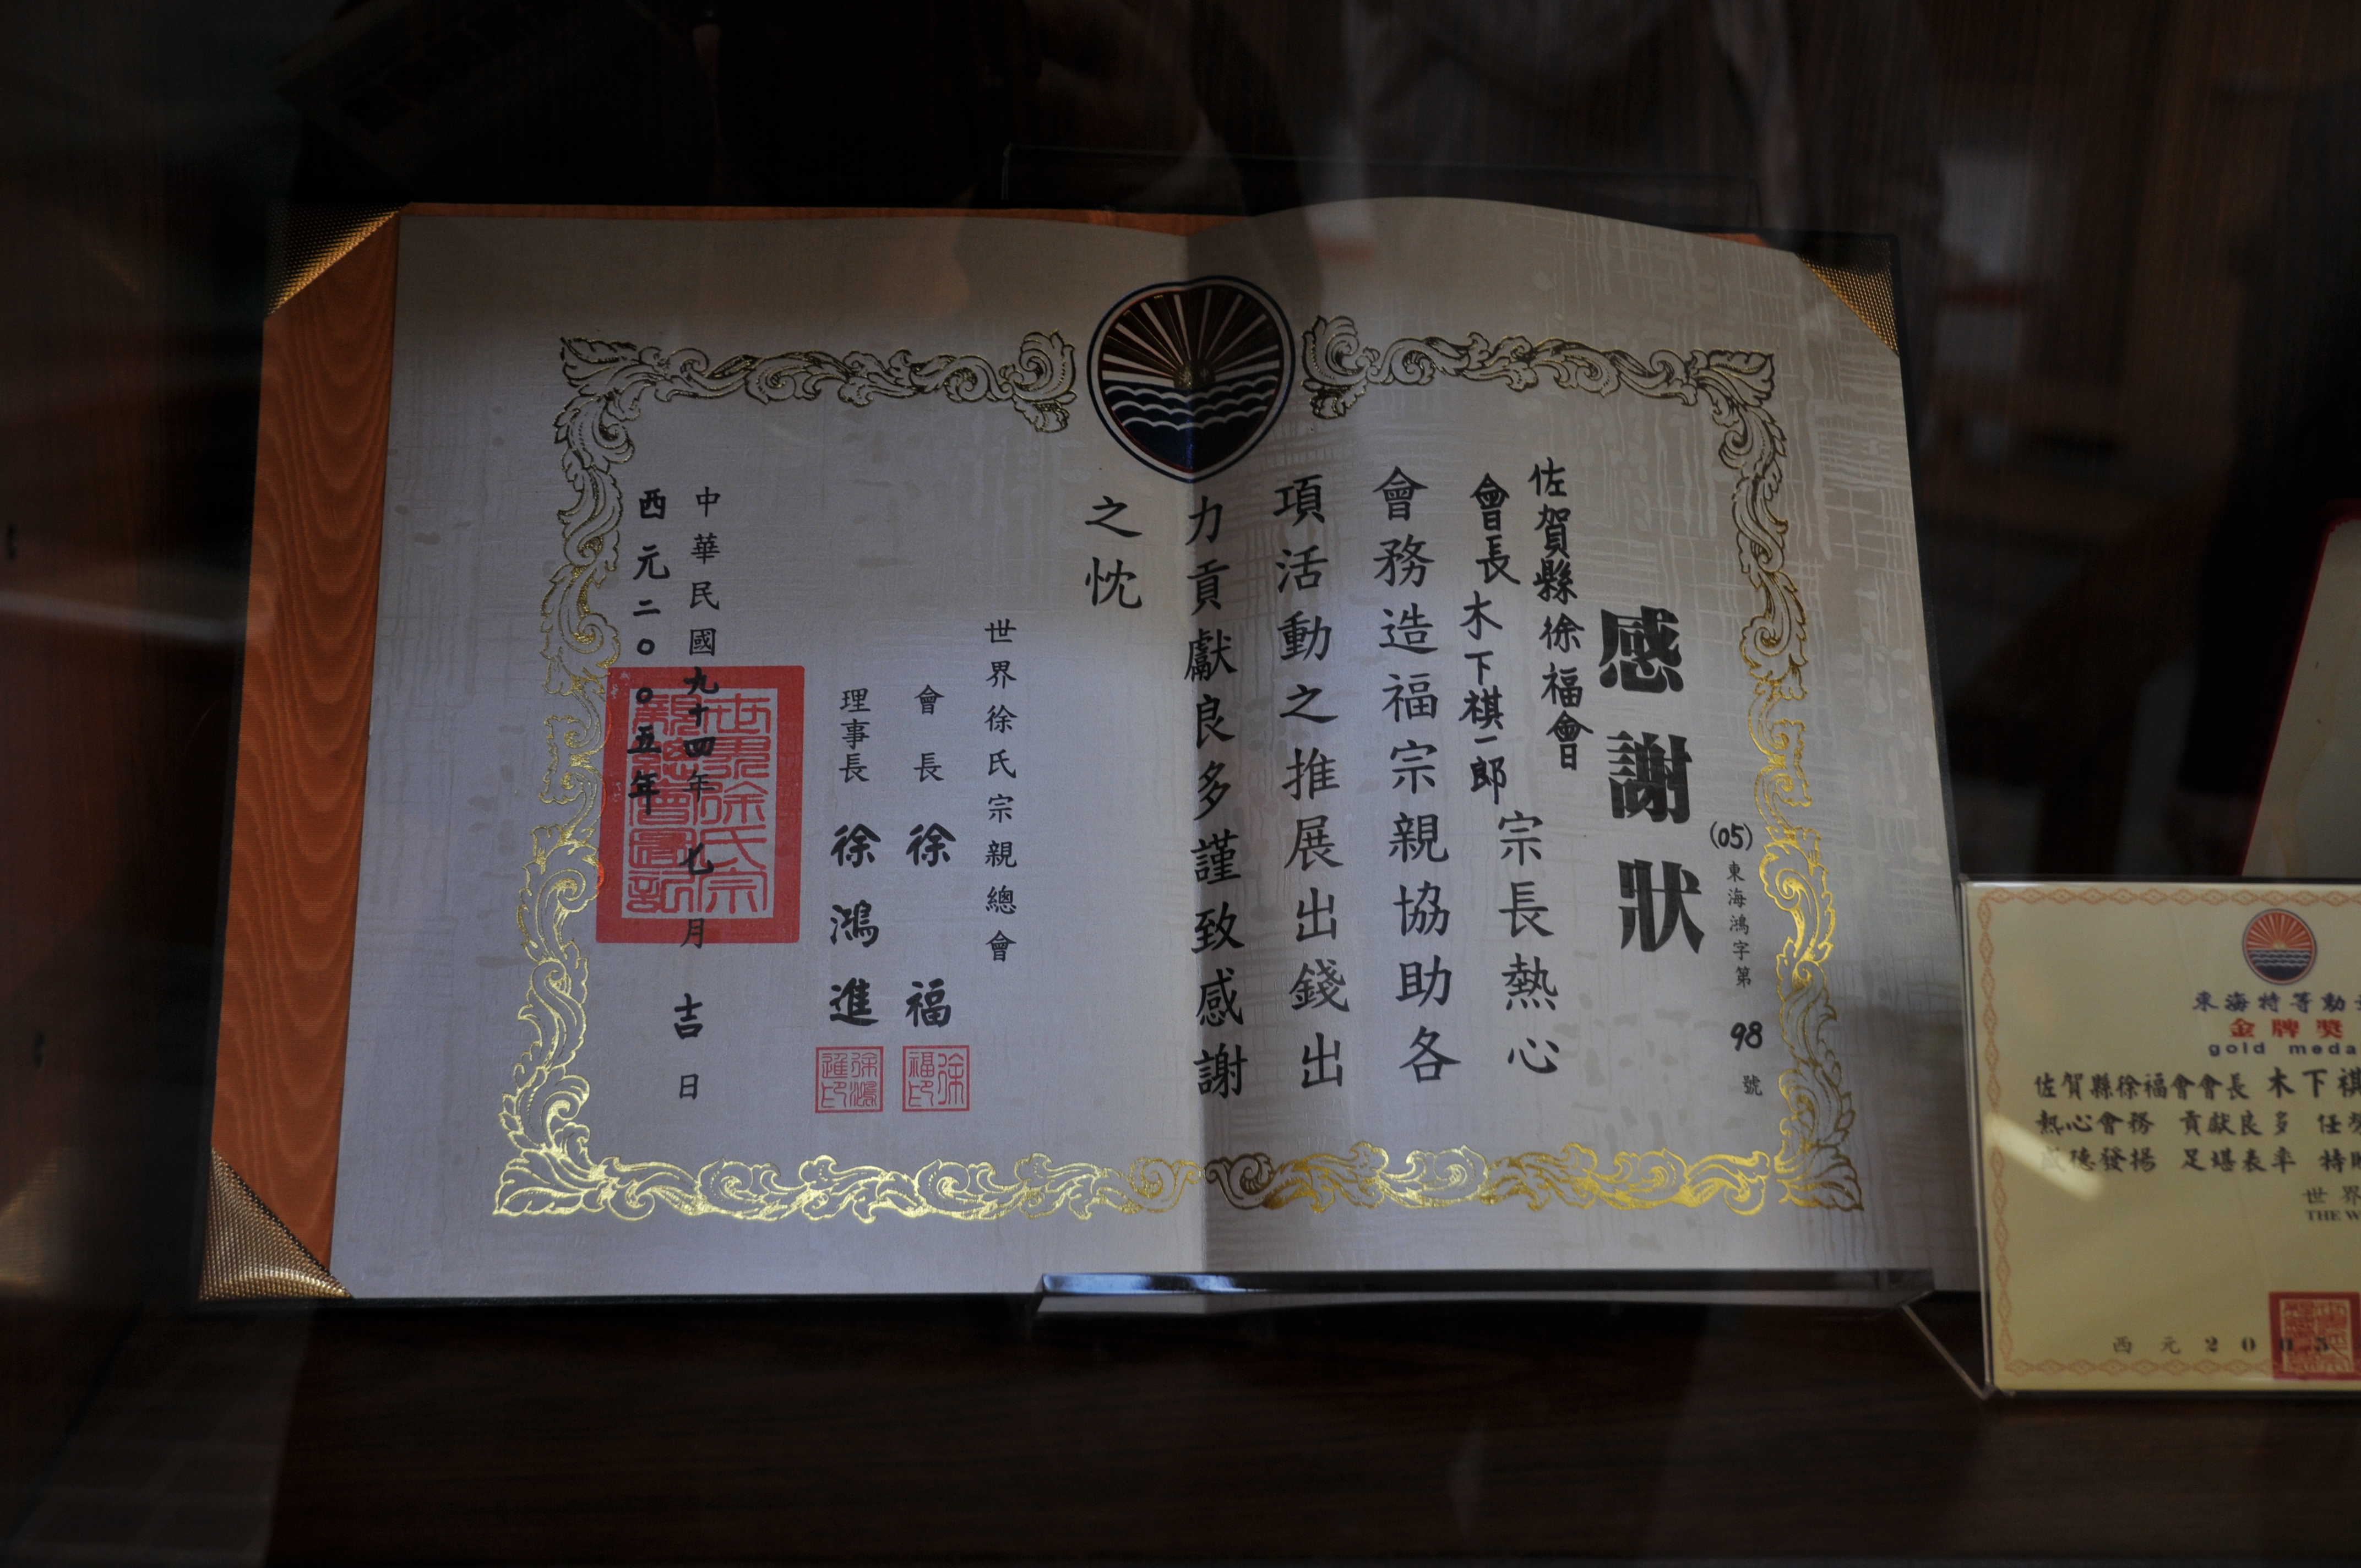 感謝狀
(05)東海鴻字第 98 號
佐賀縣徐福會
會長木下祺一郎宗長熱心
會務造福宗親協助各
項活動之推展出錢出
力貢獻良多謹致感謝
之忱
世界徐氏宗親總會
會長 徐福
理事長 徐鴻進
徐福印
徐鴻進印
中華民國九十四年七月吉日
西元二〇〇五年
東海特等勳
金牌獎
gold meda
佐賀縣徐福會會長 木下祺
熱心會務 貢獻良多 任勞
德發揚 足堪表率 特
世界
THE W
西元2005